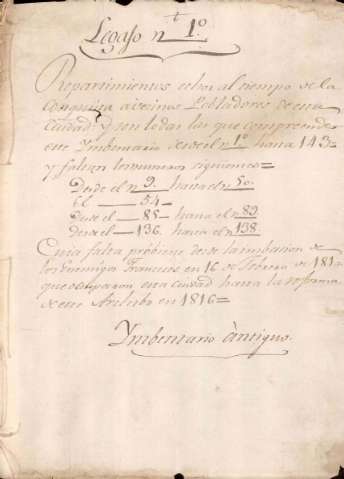 Legajo nt. 1º.
Repartimientos echos al tiempo de la
Conquista a vecinos Pobladores de esta
Ciudad, y son todas las que comprende
este Ymbentario desde el nº 1º hasta 143=
y faltan los numeros siguientes=
Desde el n 9. hasta el n 50.
El — 54—
desde el — 85— hasta el n 89.
desde el — 136. hasta el n 138.
Cuia falta probiene desde la imbasion de
los Enemigos Franceses en 16 de Febrero de 181
que ocuparon esta ciudad hasta la reforma
de este Archibo en 1816=
Ymbentario àntiguo.